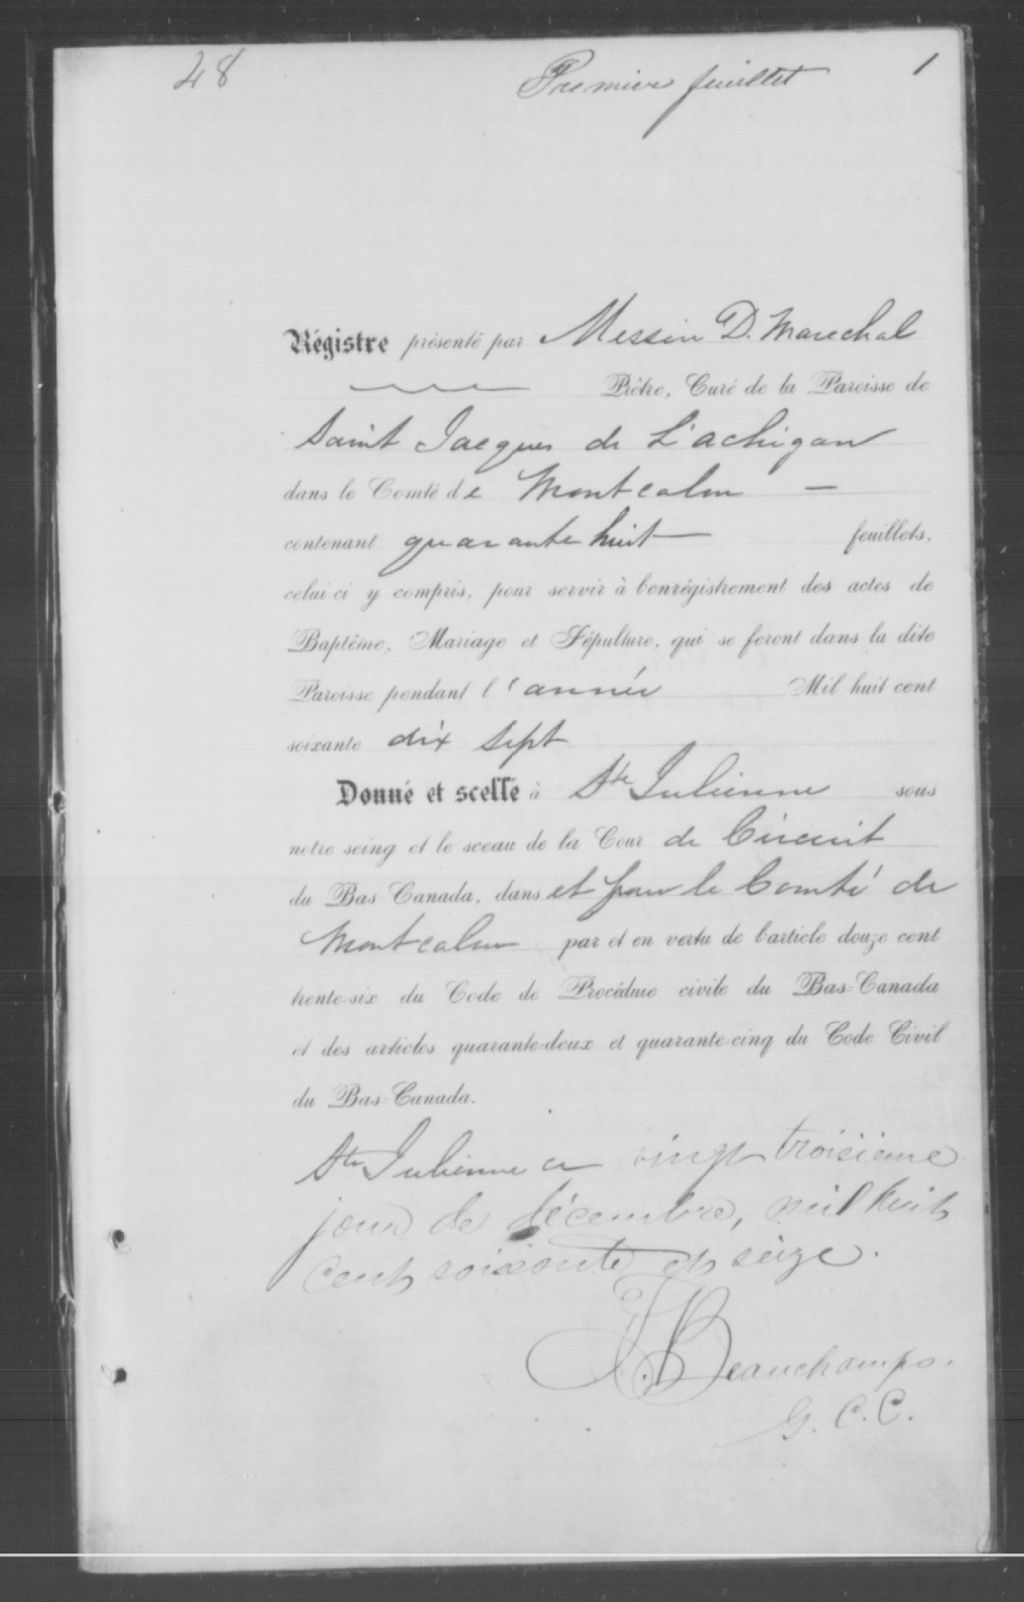 48 Premier feuillet 1
Régistre présenté par Messire D. Marechal
Prêtre, Curé de la Paroisse de
Saint Jacques de L'achigan
dans le Comté de Montcalm —
contenant quarante huit — feuillets,
celui-ci y compris, pour servir à l'enrégistrement des actes de
Baptême, Mariage et Sépulture, qui se feront dans la dite
Paroisse pendant l'année Mil huit cent
soixante dix sept
Donné et scellé à Ste Julienne sous
notre seing et le sceau de la Cour de Circuit
du Bas-Canada, dans et pour le Comté de
Montcalm par et en vertu de l'article douze cent
trente-six du Code de Procédure civile du Bas-Canada
et des articles quarante-deux et quarante-cinq du Code Civil
du Bas-Canada.
Ste Julienne ce vingt troisième
jour de décembre, mil huit
cent soixante et seize.
J. Beauchamp.
G. C. C.